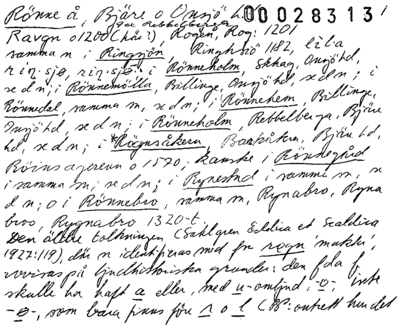 Rönne å, Bjäre o Onsjö hd. 00028313 1
(av Rebbelberga)
Ravgn o 1200 (här?) Rogen, Rog: 1201
samma n i Ringsjön Ringhsiö 1182, lila
rin:sjø, rin:sjø; i Rönneholm, Stehag, Onsjöhd,
xdn; i Rönnemölla Billinge, Onsjöhd xdn; i
Rönnedal, samma m, xdn, i Rönnehem, Billinge,
Onsjöhd, xdn; i Rönneholm Rebbelberga, Bjäre
hd, xdn; i *Rögnsåkern, Baråkra, Bjäre hd,
o 1570; kanske i Rönnegård
i samma m; xdn; i Rynestad i samma m, x
dn; o i Rönnebro, samma m, Rynabro, Ryna
broo, Rygnabro 1320-t.
Den äldre tolkningen (Sahlgren Eddica et Scaldica
1927:119), där n identifieras med fvn rogn 'makter',
avvisas på ljudhistoriska grunder: den fda f
skulle ha haft a eller, med u-omljud, -o-, inte
-ø-, som bara finns före r o l (